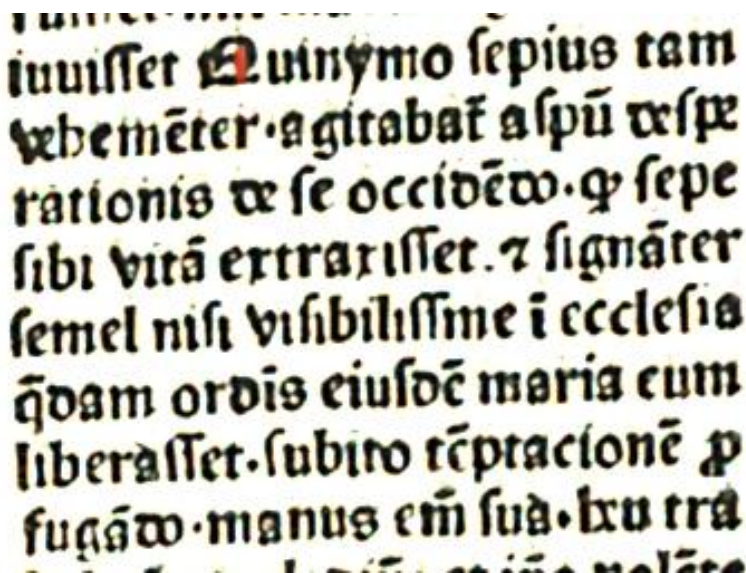 iuuisset Quinymo sepius tam
vehemēter·agitabat̄ a spū despe
rationis de se occidēdo·ꝙ sepe
sibi vitā extraxisset.⁊ signāter
semel nisi visibilissime ī ecclesia
q̄dam ordīs eiusdē maria eum
liberasset·subito tēptacionē ꝓ
fugādo·manus em̄ sua·lxu tra